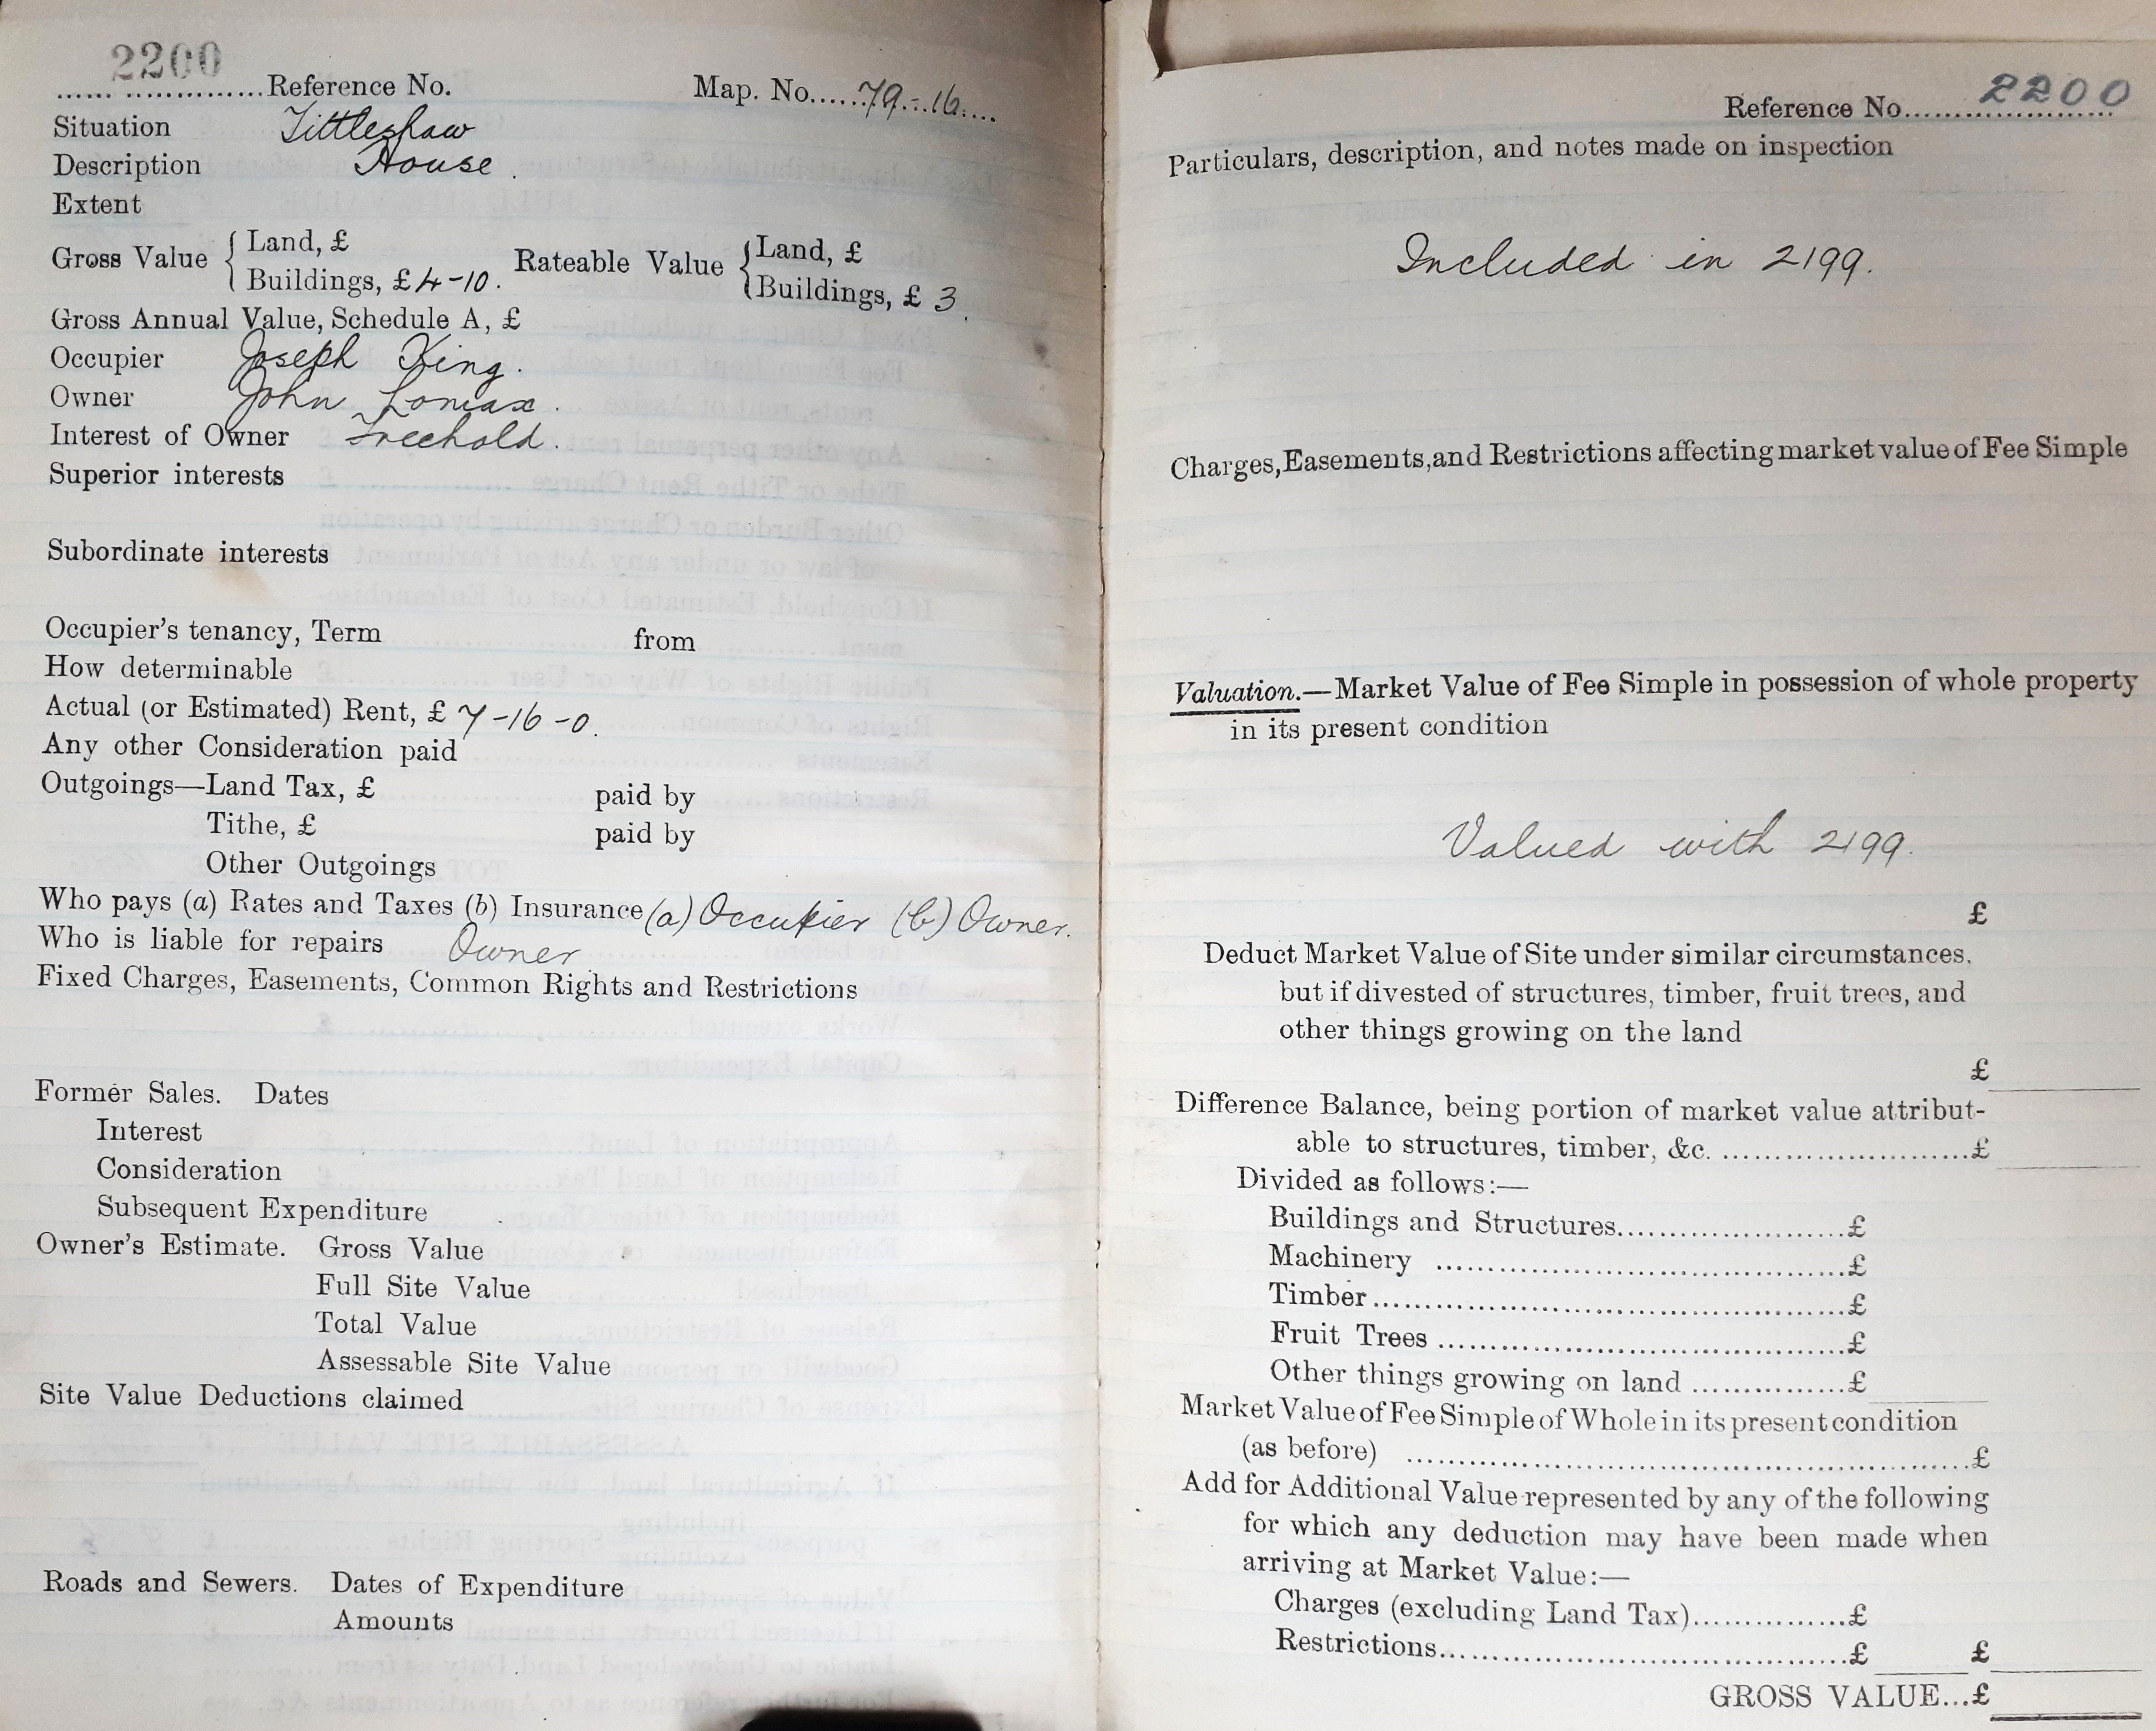 2200
...... ...............Reference No. Map. No......79.-.16....
Situation Tittleshaw
Description House.
Extent
Gross Value { Land, £ Rateable Value { Land, £
Buildings, £ 4-10. Buildings, £ 3.
Gross Annual Value, Schedule A, £
Occupier Joseph King.
Owner John Lomax.
Interest of Owner Freehold.
Superior interests
Subordinate interests
Occupier's tenancy, Term from
How determinable
Actual (or Estimated) Rent, £ 7-16-0.
Any other Consideration paid
Outgoings—Land Tax, £ paid by
Tithe, £ paid by
Other Outgoings
Who pays (a) Rates and Taxes (b) Insurance (a) Occupier (b) Owner.
Who is liable for repairs Owner
Fixed Charges, Easements, Common Rights and Restrictions
Former Sales. Dates
Interest
Consideration
Subsequent Expenditure
Owner's Estimate. Gross Value
Full Site Value
Total Value
Assessable Site Value
Site Value Deductions claimed
Roads and Sewers. Dates of Expenditure
Amounts
Reference No. 2200
Particulars, description, and notes made on inspection
Included in 2199.
Charges, Easements, and Restrictions affecting market value of Fee Simple
Valuation.—Market Value of Fee Simple in possession of whole property
in its present condition
Valued with 2199.
£
Deduct Market Value of Site under similar circumstances,
but if divested of structures, timber, fruit trees, and
other things growing on the land
£
Difference Balance, being portion of market value attribut-
able to structures, timber, &c. ........................£
Divided as follows:—
Buildings and Structures.....................£
Machinery .....................................£
Timber...........................................£
Fruit Trees .....................................£
Other things growing on land ...............£
Market Value of Fee Simple of Whole in its present condition
(as before) .....................................................£
Add for Additional Value represented by any of the following
for which any deduction may have been made when
arriving at Market Value:—
Charges (excluding Land Tax)...............£
Restrictions.....................................£ £
GROSS VALUE...£